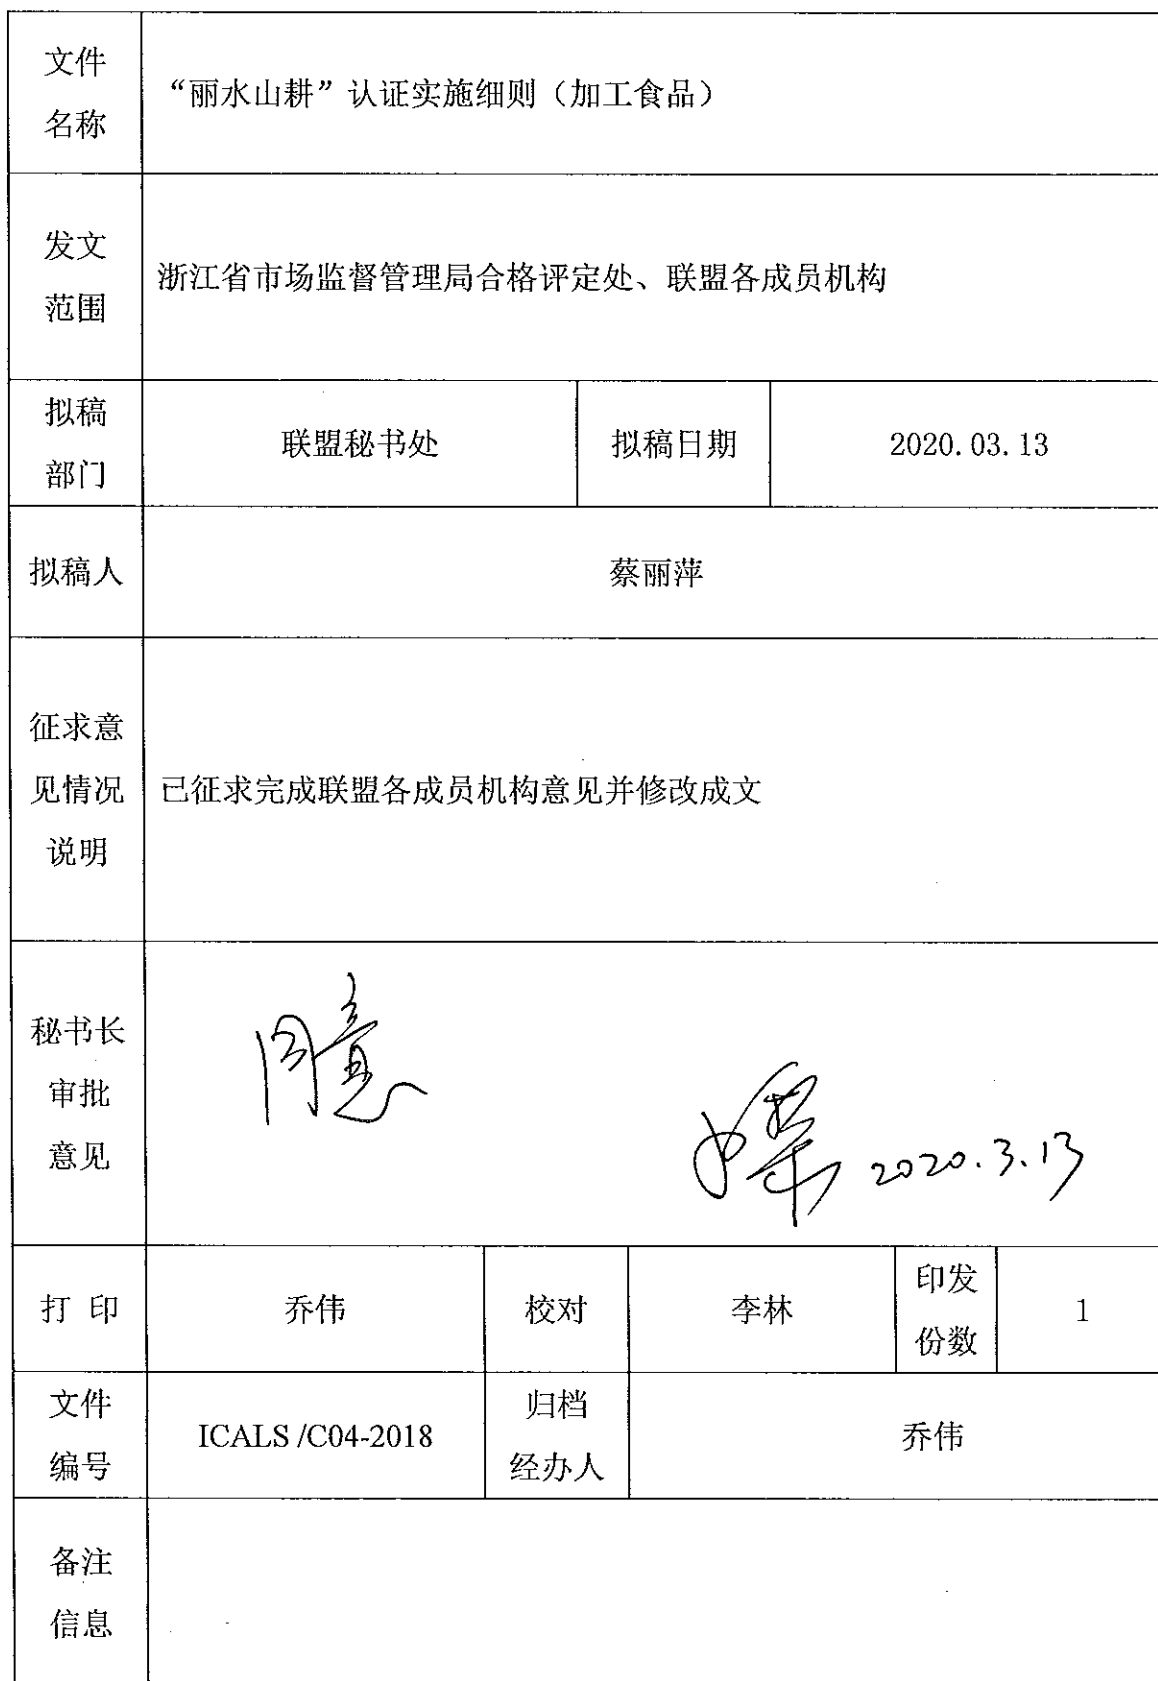 文件
名称
“丽水山耕”认证实施细则（加工食品）
发文
范围
浙江省市场监督管理局合格评定处、联盟各成员机构
拟稿
部门
联盟秘书处
拟稿日期
2020.03.13
拟稿人
蔡丽萍
征求意
见情况
说明
已征求完成联盟各成员机构意见并修改成文
秘书长
审批
意见
同意
2020.3.13
打 印
乔伟
校对
李林
印发
份数
1
文件
编号
ICALS /C04-2018
归档
经办人
乔伟
备注
信息